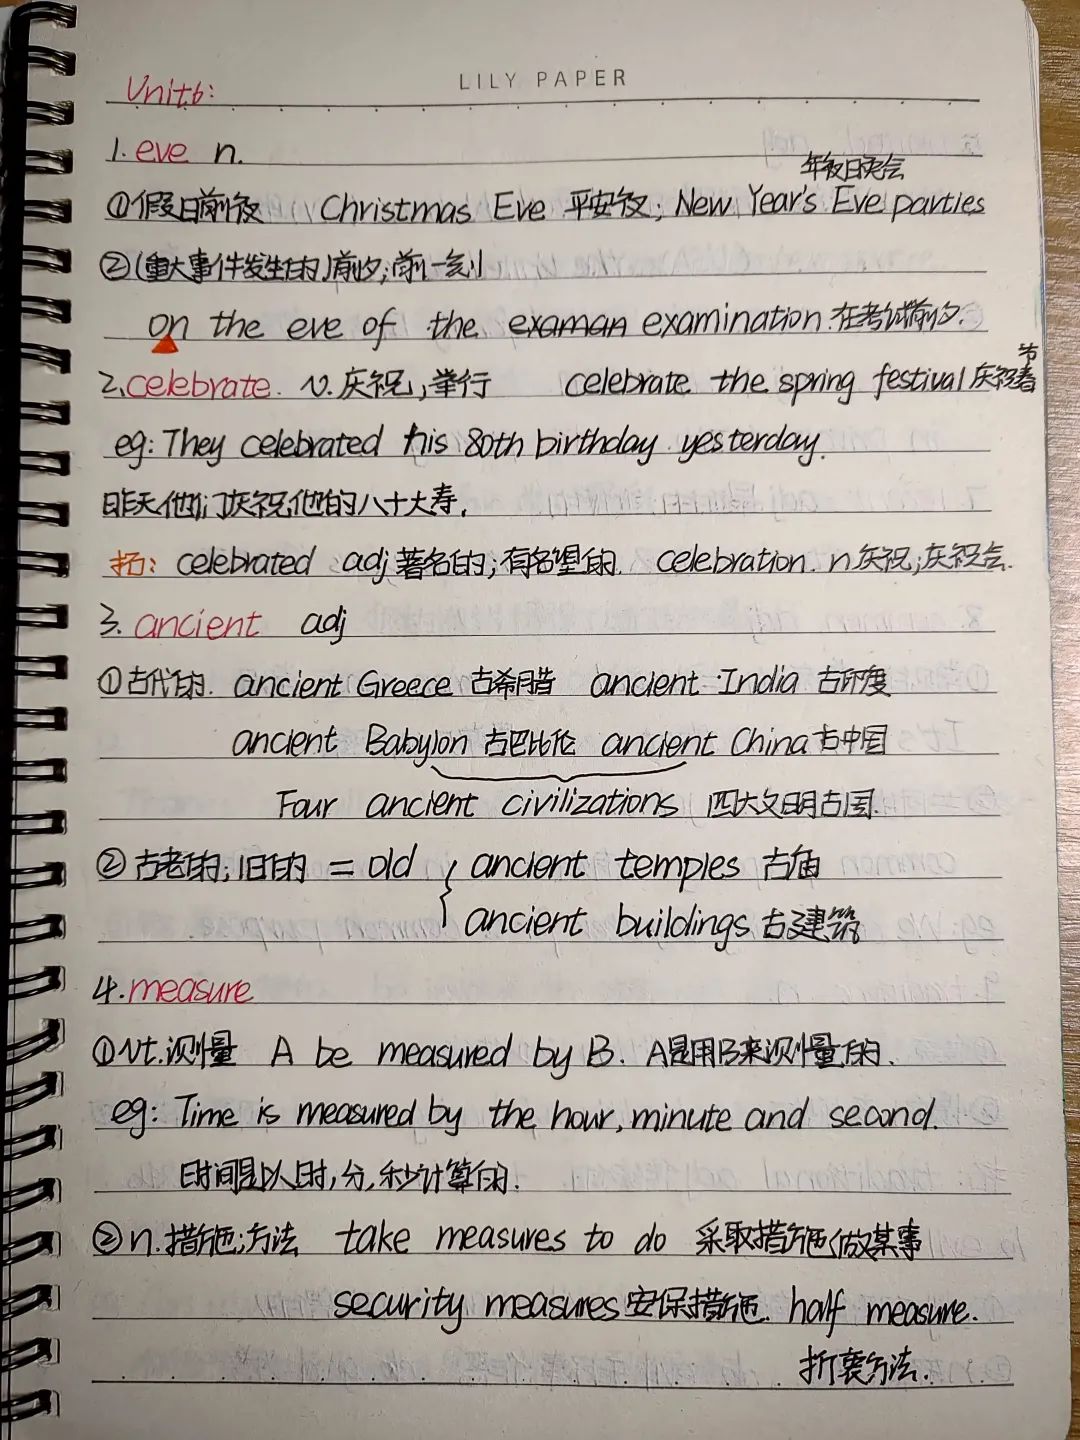 LILY PAPER
Unit6:
1. eve n.
年夜日晚会
①假日前夜 Christmas Eve 平安夜; New Year's Eve parties
②(重大事件发生的)前夕;前一刻
on the eve of the examan examination 在考试前夕.
2. celebrate. v.庆祝;举行 celebrate the spring festival 庆祝春节
eg: They celebrated his 80th birthday yesterday.
昨天他们庆祝他的八十大寿.
拓: celebrated adj 著名的;有名望的. celebration. n 庆祝;庆祝会.
3. ancient adj
①古代的. ancient Greece 古希腊 ancient India 古印度
ancient Babylon 古巴比伦 ancient China 古中国
Four ancient civilizations 四大文明古国.
②古老的;旧的 = old { ancient temples 古庙
ancient buildings 古建筑
4. measure
①vt.测量 A be measured by B. A是用B来测量的.
eg: Time is measured by the hour, minute and second.
时间是以时,分,秒计算的.
②n.措施;方法 take measures to do 采取措施做某事
security measures 安保措施. half measure.
折衷方法.